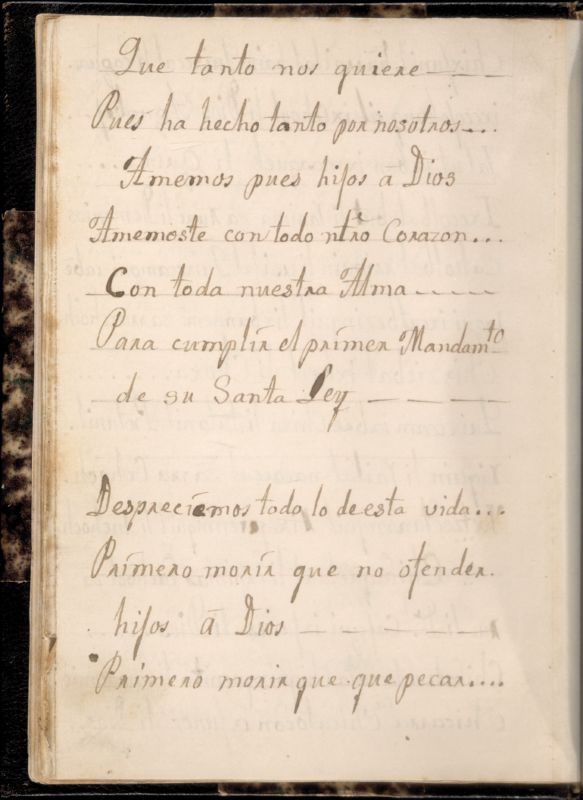 Que tanto nos quiere
Pues ha hecho tanto por nosotros...
Amemos pues hijos â Dios
Amemoste con todo ntrô Corazon...
Con toda nuestra Alma .....
Para cumplir el primer Mandamto
de su Santa Ley
Despreciemos todo lo de esta vida...
Primero morir que no ofender
hijos â Dios
Primero morir que que pecar....